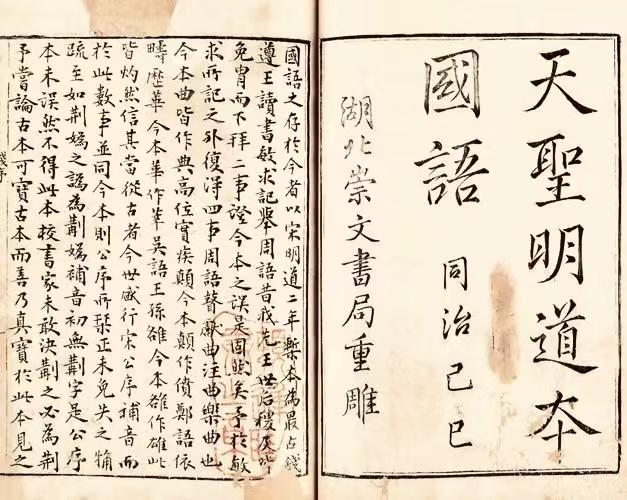 天聖明道夲
國語
同治己巳
湖北崇文書局重雕
國語之存於今者以宋明道二年槧本為最古錢
遵王讀書敏求記舉周語昔我先王世后稷及皆
免冑而下拜二事證今本之誤是固然矣予於敏
求所記之外復得四事周語瞽獻曲注曲樂曲也
今本曲皆作典高位實疾顛今本顛作僨鄭語依
疇歷華今本華作莘吳語王孫雒今本雒作雄此
皆灼然信其當從古者今世盛行宋公序補音而
於此數事並同今本則公序所栞正未免失之觕
疏至如荆嬀之譌為嬀補音初無字是公序
本未誤然不得此本校書家未敢決之必為荆
予嘗論古本可寶古本而善乃真寶於此本見之
錢序